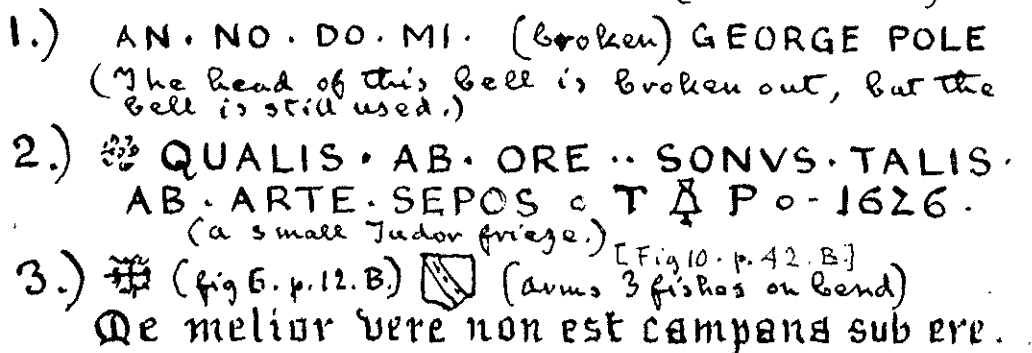 1.) AN. NO. DO. MI. (broken) GEORGE POLE
(The head of this bell is broken out, but the
bell is still used.)
2.) QUALIS. AB. ORE .. SONVS. TALIS.
AB. ARTE. SEPOS c T P o - 1626.
(a small Tudor frieze.)
[Fig 10. p. 42. B.]
3.) (fig 6. p. 12. B.) (arms 3 fishes on bend)
Me melior vere non est campana sub ere.